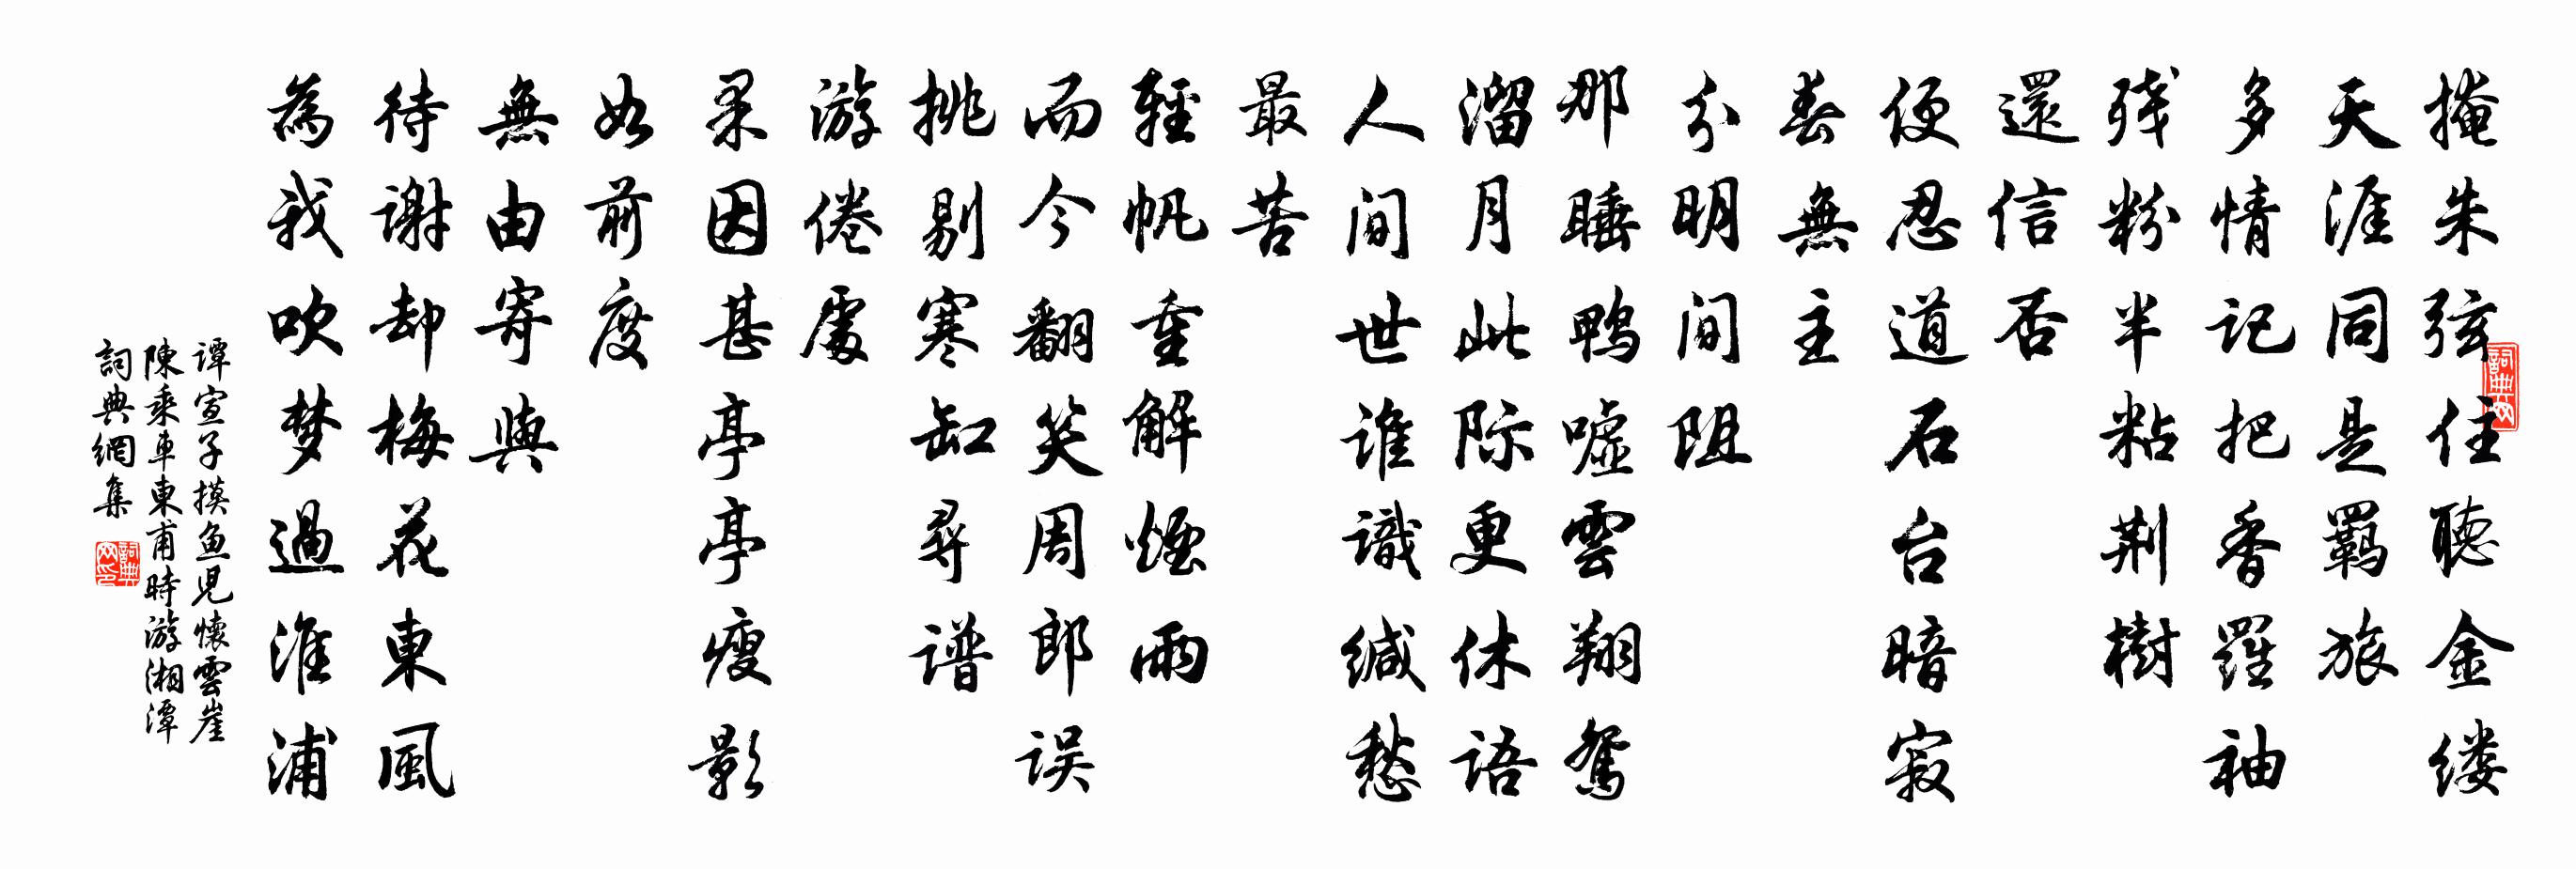 掩朱弦住聽金缕
天涯同是羁旅
多情记把香羅袖
残粉半粘荆樹
還信否
便忍道石台暗寂
春無主
分明间阻
那睡鸭嘘雲翔鸳
溜月此际更休语
人间世谁識缄愁
最苦
輕帆重解煙雨
而今翻笑周郎误
挑剔寒缸尋谱
游倦處
柔因甚亭亭瘦影
如前度
無由寄與
待谢却梅花東風
為我吹梦過淮浦
谭宣子摸鱼児懐雲崖
陳乘車東甫時游湘潭
詞典網集
詞典网
詞典网印